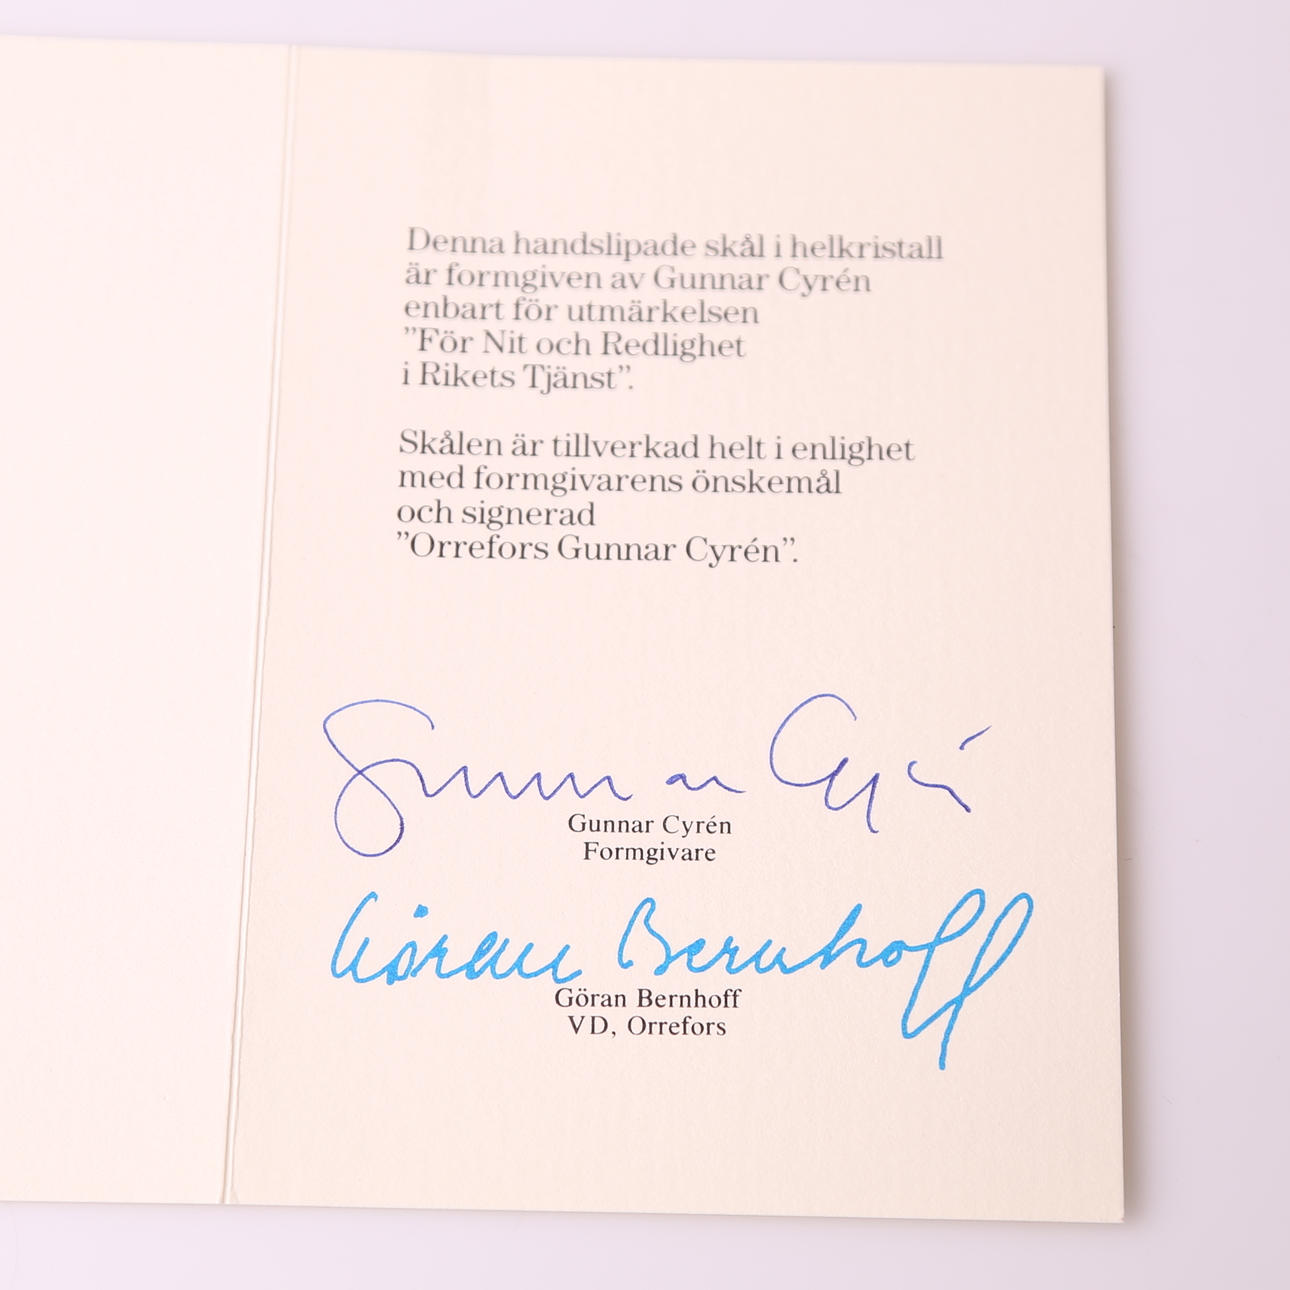 Denna handslipade skål i helkristall
är formgiven av Gunnar Cyrén
enbart för utmärkelsen
”För Nit och Redlighet
i Rikets Tjänst”.
Skålen är tillverkad helt i enlighet
med formgivarens önskemål
och signerad
”Orrefors Gunnar Cyrén”.
Gunnar Cyrén
Gunnar Cyrén
Formgivare
Göran Bernhoff
Göran Bernhoff
VD, Orrefors